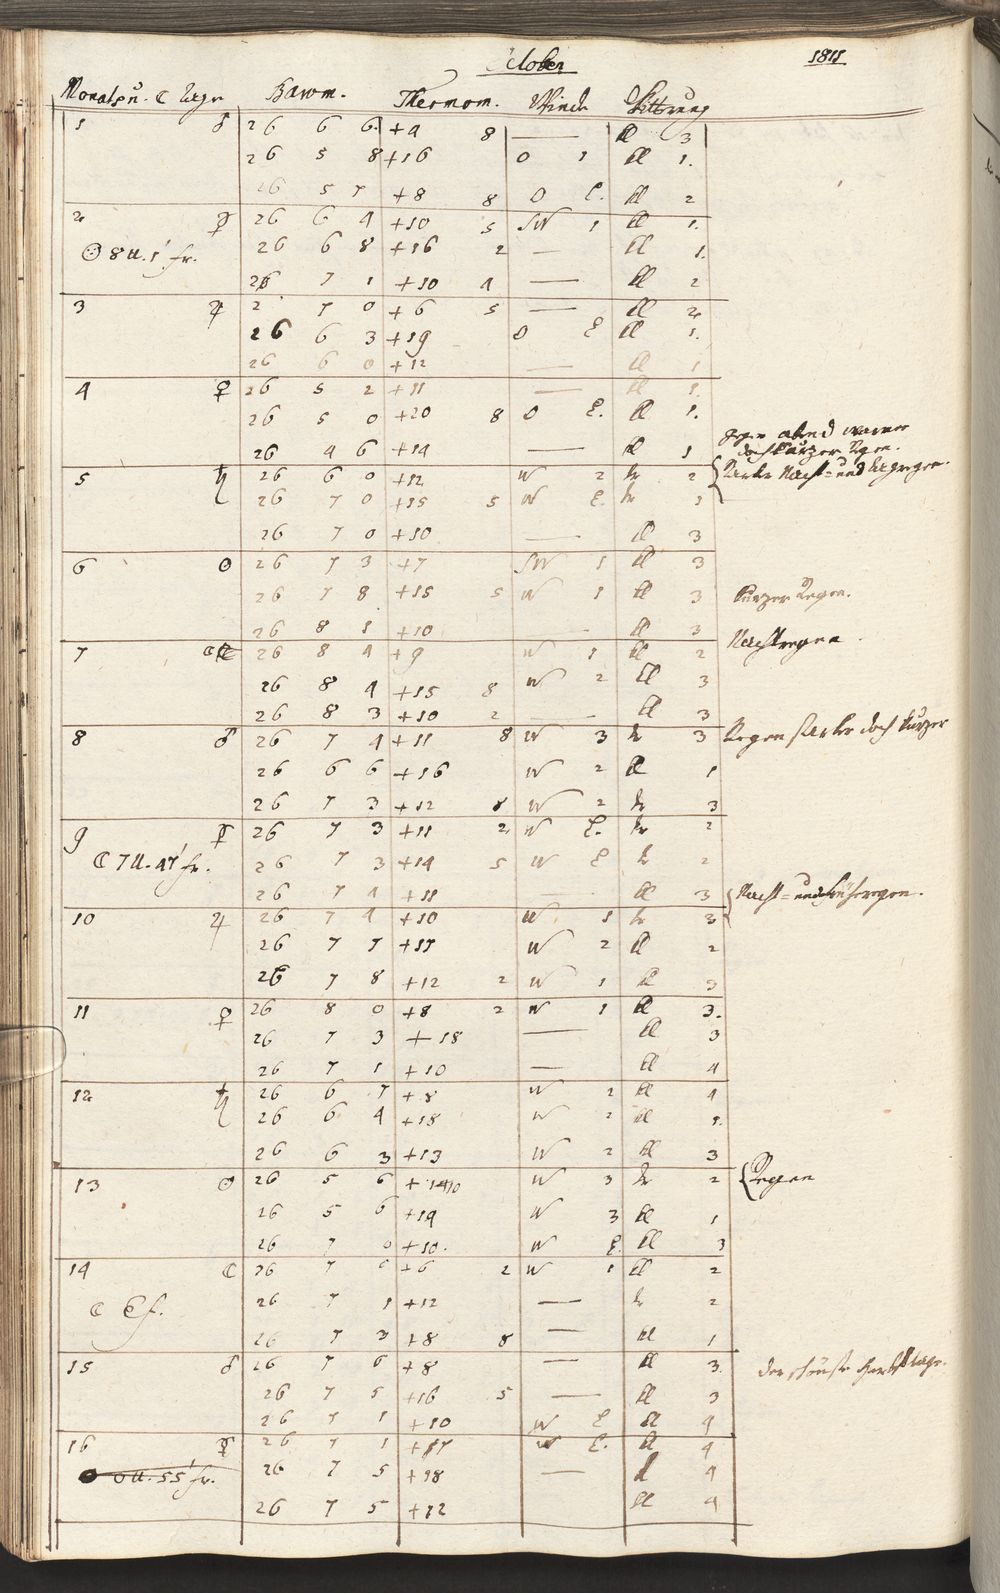 October 1811
Monats u. ☾ Tage Barom. Thermom. Winde Witterung
1 ♂ 26 6 6 +9 8 — kl 3
26 5 8 +16 O 1 kl 1.
26 5 7 +8 8 O E. kl 2
2 ☿ 26 6 4 +10 5 SW 1 kl 1.
☉ 8 U. 1' fr. 26 6 8 +16 2 — kl 1.
26 7 1 +10 4 — kl 2
3 ♃ 2 7 0 +6 5 — kl 2
26 6 3 +19 O E kl 1.
26 6 0 +12 — kl 1
4 ♀ 26 5 2 +11 — kl 1.
26 5 0 +20 8 O E. kl 1.
gegen abend
26 4 6 +14 — kl 1 doch kurzer Regen.
5 ♄ 26 6 0 +12 W 2 tr 2 starker Nacht= und tagregen.
26 7 0 +15 5 W E. tr
26 7 0 +10 — kl 3
6 ☉ 26 7 3 +7 SW 1 kl 3
26 7 8 +15 5 W 1 kl 3 kurzer Regen.
26 8 1 +10 — kl 3
7 ☾ 26 8 4 +9 W 1 kl 2 Nachtregen.
26 8 4 +15 8 W 2 kl 3
26 8 3 +10 2 — kl 3
8 ♂ 26 7 4 +11 8 W 3 tr 3 Regen starker doch kurzer
26 6 6 +16 W 2 kl 1
26 7 3 +12 8 W 2 tr 3
9 ☿ 26 7 3 +11 2 W E. tr 2
☾ 7 U. 47' fr. 26 7 3 +14 5 W E tr 2
26 7 4 +11 — kl 3 Nacht= und frühregen.
10 ♃ 26 7 4 +10 W 1 tr 3
26 7 7 +17 W 2 kl 2
26 7 8 +12 2 W 1 kl 3
11 ♀ 26 8 0 +8 2 W 1 kl 3.
26 7 3 +18 — kl 3
26 7 1 +10 — kl 4
12 ♄ 26 6 7 +8 W 2 kl 4
26 6 4 +18 W 2 kl 1.
26 6 3 +13 W 2 kl 3
13 ☉ 26 5 6 +10 W 3 tr 2 Regen
26 5 6 +14 W 3 kl 1
26 7 0 +10. W E. kl 3
14 ☾ 26 7 6 +6 2 W 1 kl 2
☾ Ef. 26 7 1 +12 — tr 2
26 7 3 +8 8 — kl 1
15 ♂ 26 7 6 +8 — kl 3 der schönste Herbsttage.
26 7 5 +16 5 — kl 3
26 7 1 +10 W E kl 4
16 ☿ 26 7 1 +17 W E. kl 4
0 U. 55' fr. 26 7 5 +18 — kl 4
26 7 5 +12 kl 4